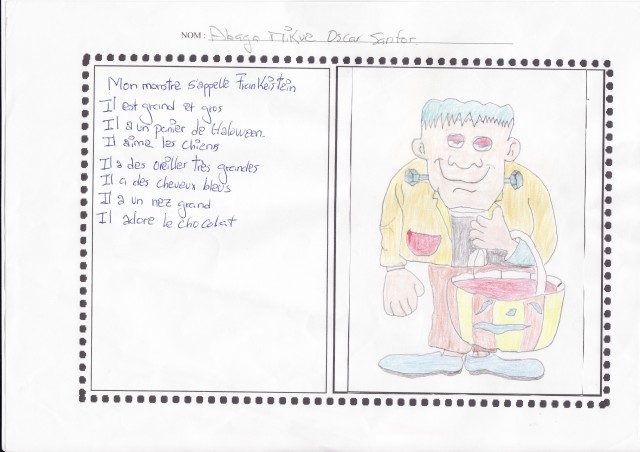 NOM : Abaga Mikue Oscar Santor.
Mon monstre s'appelle Frankeistein
Il est grand et gros
Il a un panier de Haloween.
Il aime les chiens
Il a des oreilles très grandes
Il a des cheveux bleus
Il a un nez grand
Il adore le chocolat